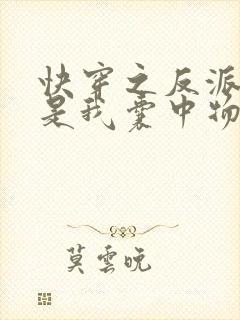 快穿之反派
是我囊中物
莫雲晚